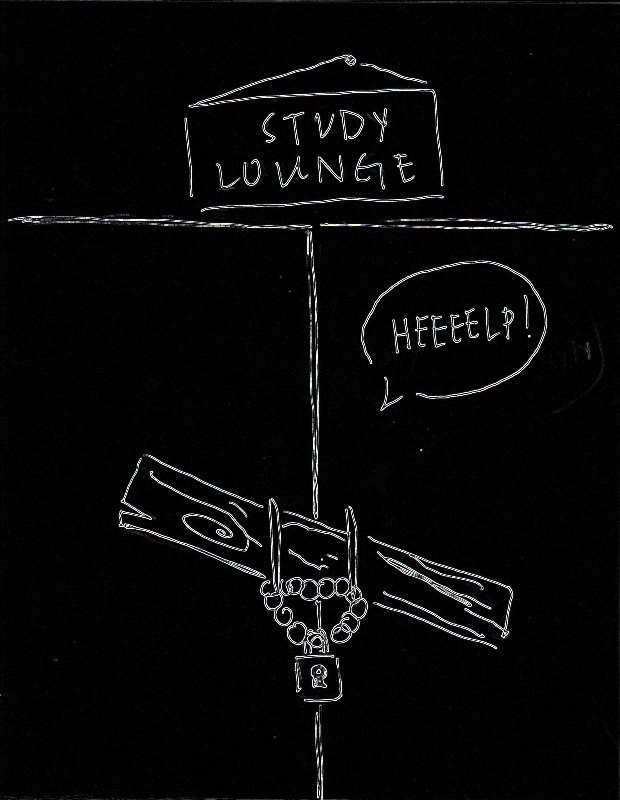 STUDY
LOUNGE
HEEEELP!